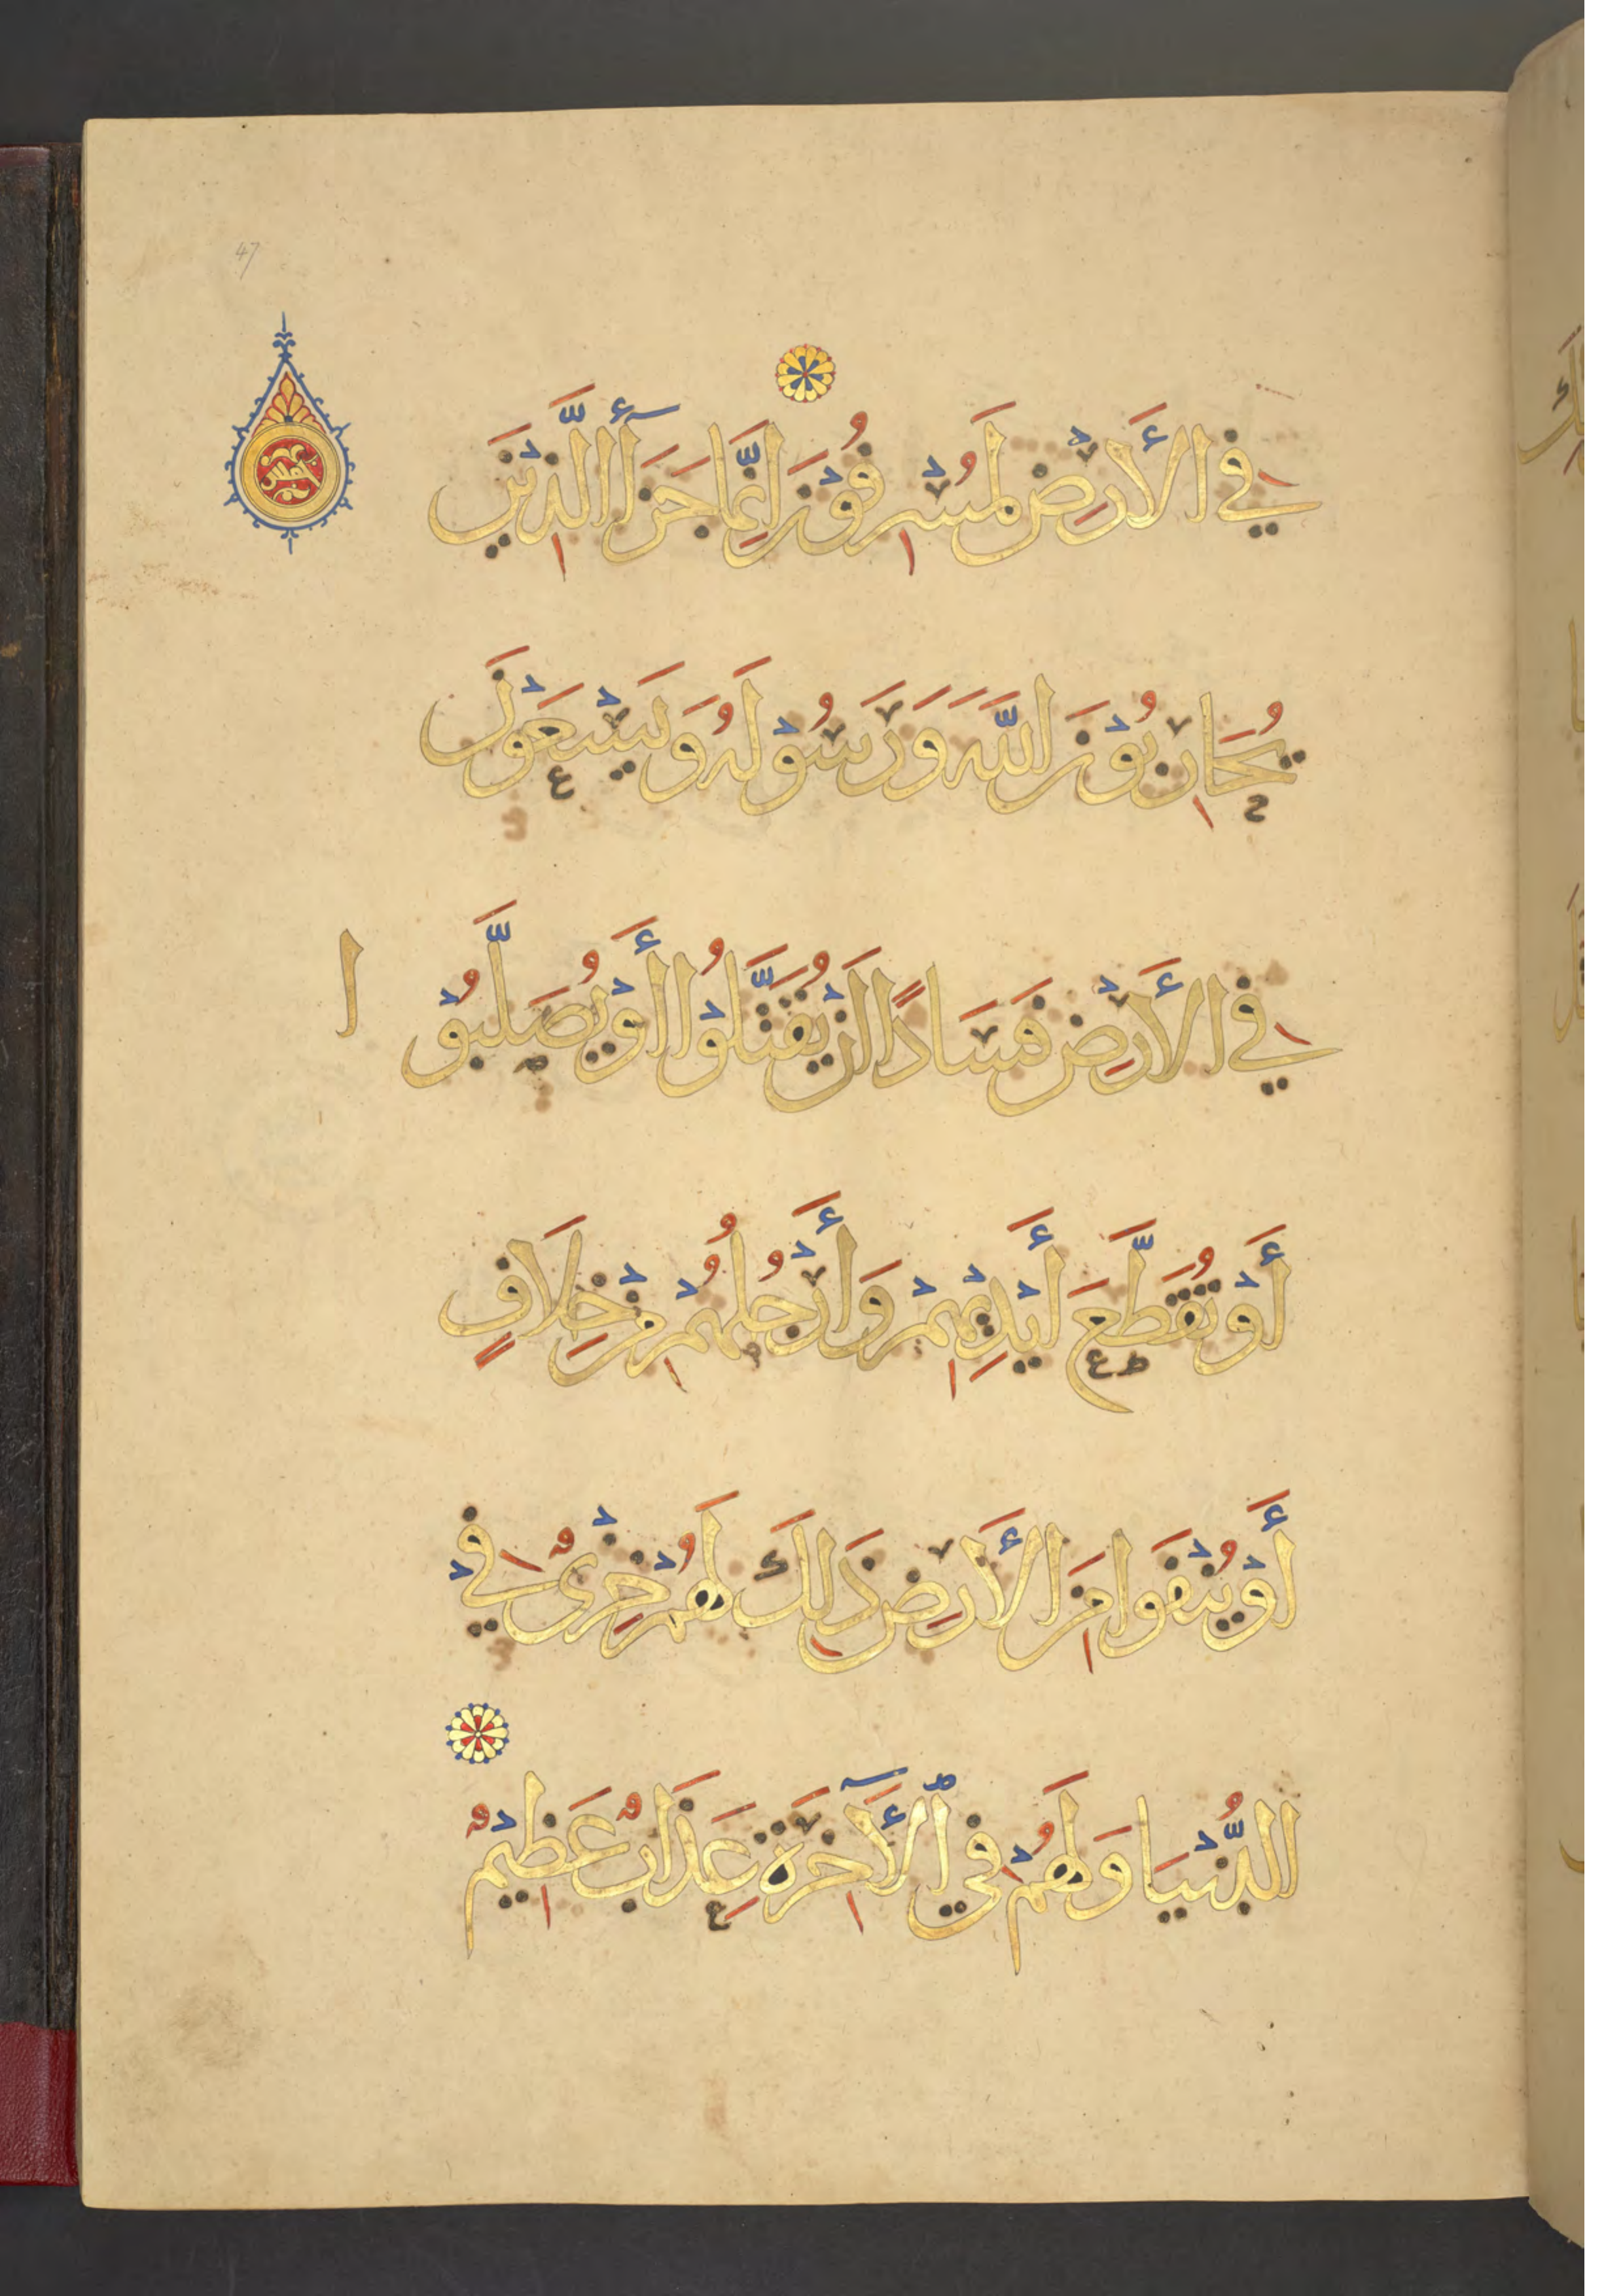 47
فِي الْأَرْضِ لَمُسْرِفُوْنَ إِنَّمَا جَزَآءُ الَّذِيْنَ
يُحَارِبُوْنَ اللَّهَ وَرَسُوْلَهُ وَيَسْعَوْنَ
فِي الْأَرْضِ فَسَادًا اَنْ يُقَتَّلُوْا أَوْ يُصَلَّبُوْا
أَوْ تُقَطَّعَ أَيْدِيْهِمْ وَأَرْجُلُهُمْ مِنْ خِلَافٍ
أَوْ يُنْفَوْا مِنَ الْأَرْضِ ذٰلِكَ لَهُمْ خِزْيٌ فِي
الدُّنْيَا وَلَهُمْ فِي الْآخِرَةِ عَذَابٌ عَظِيْمٌ